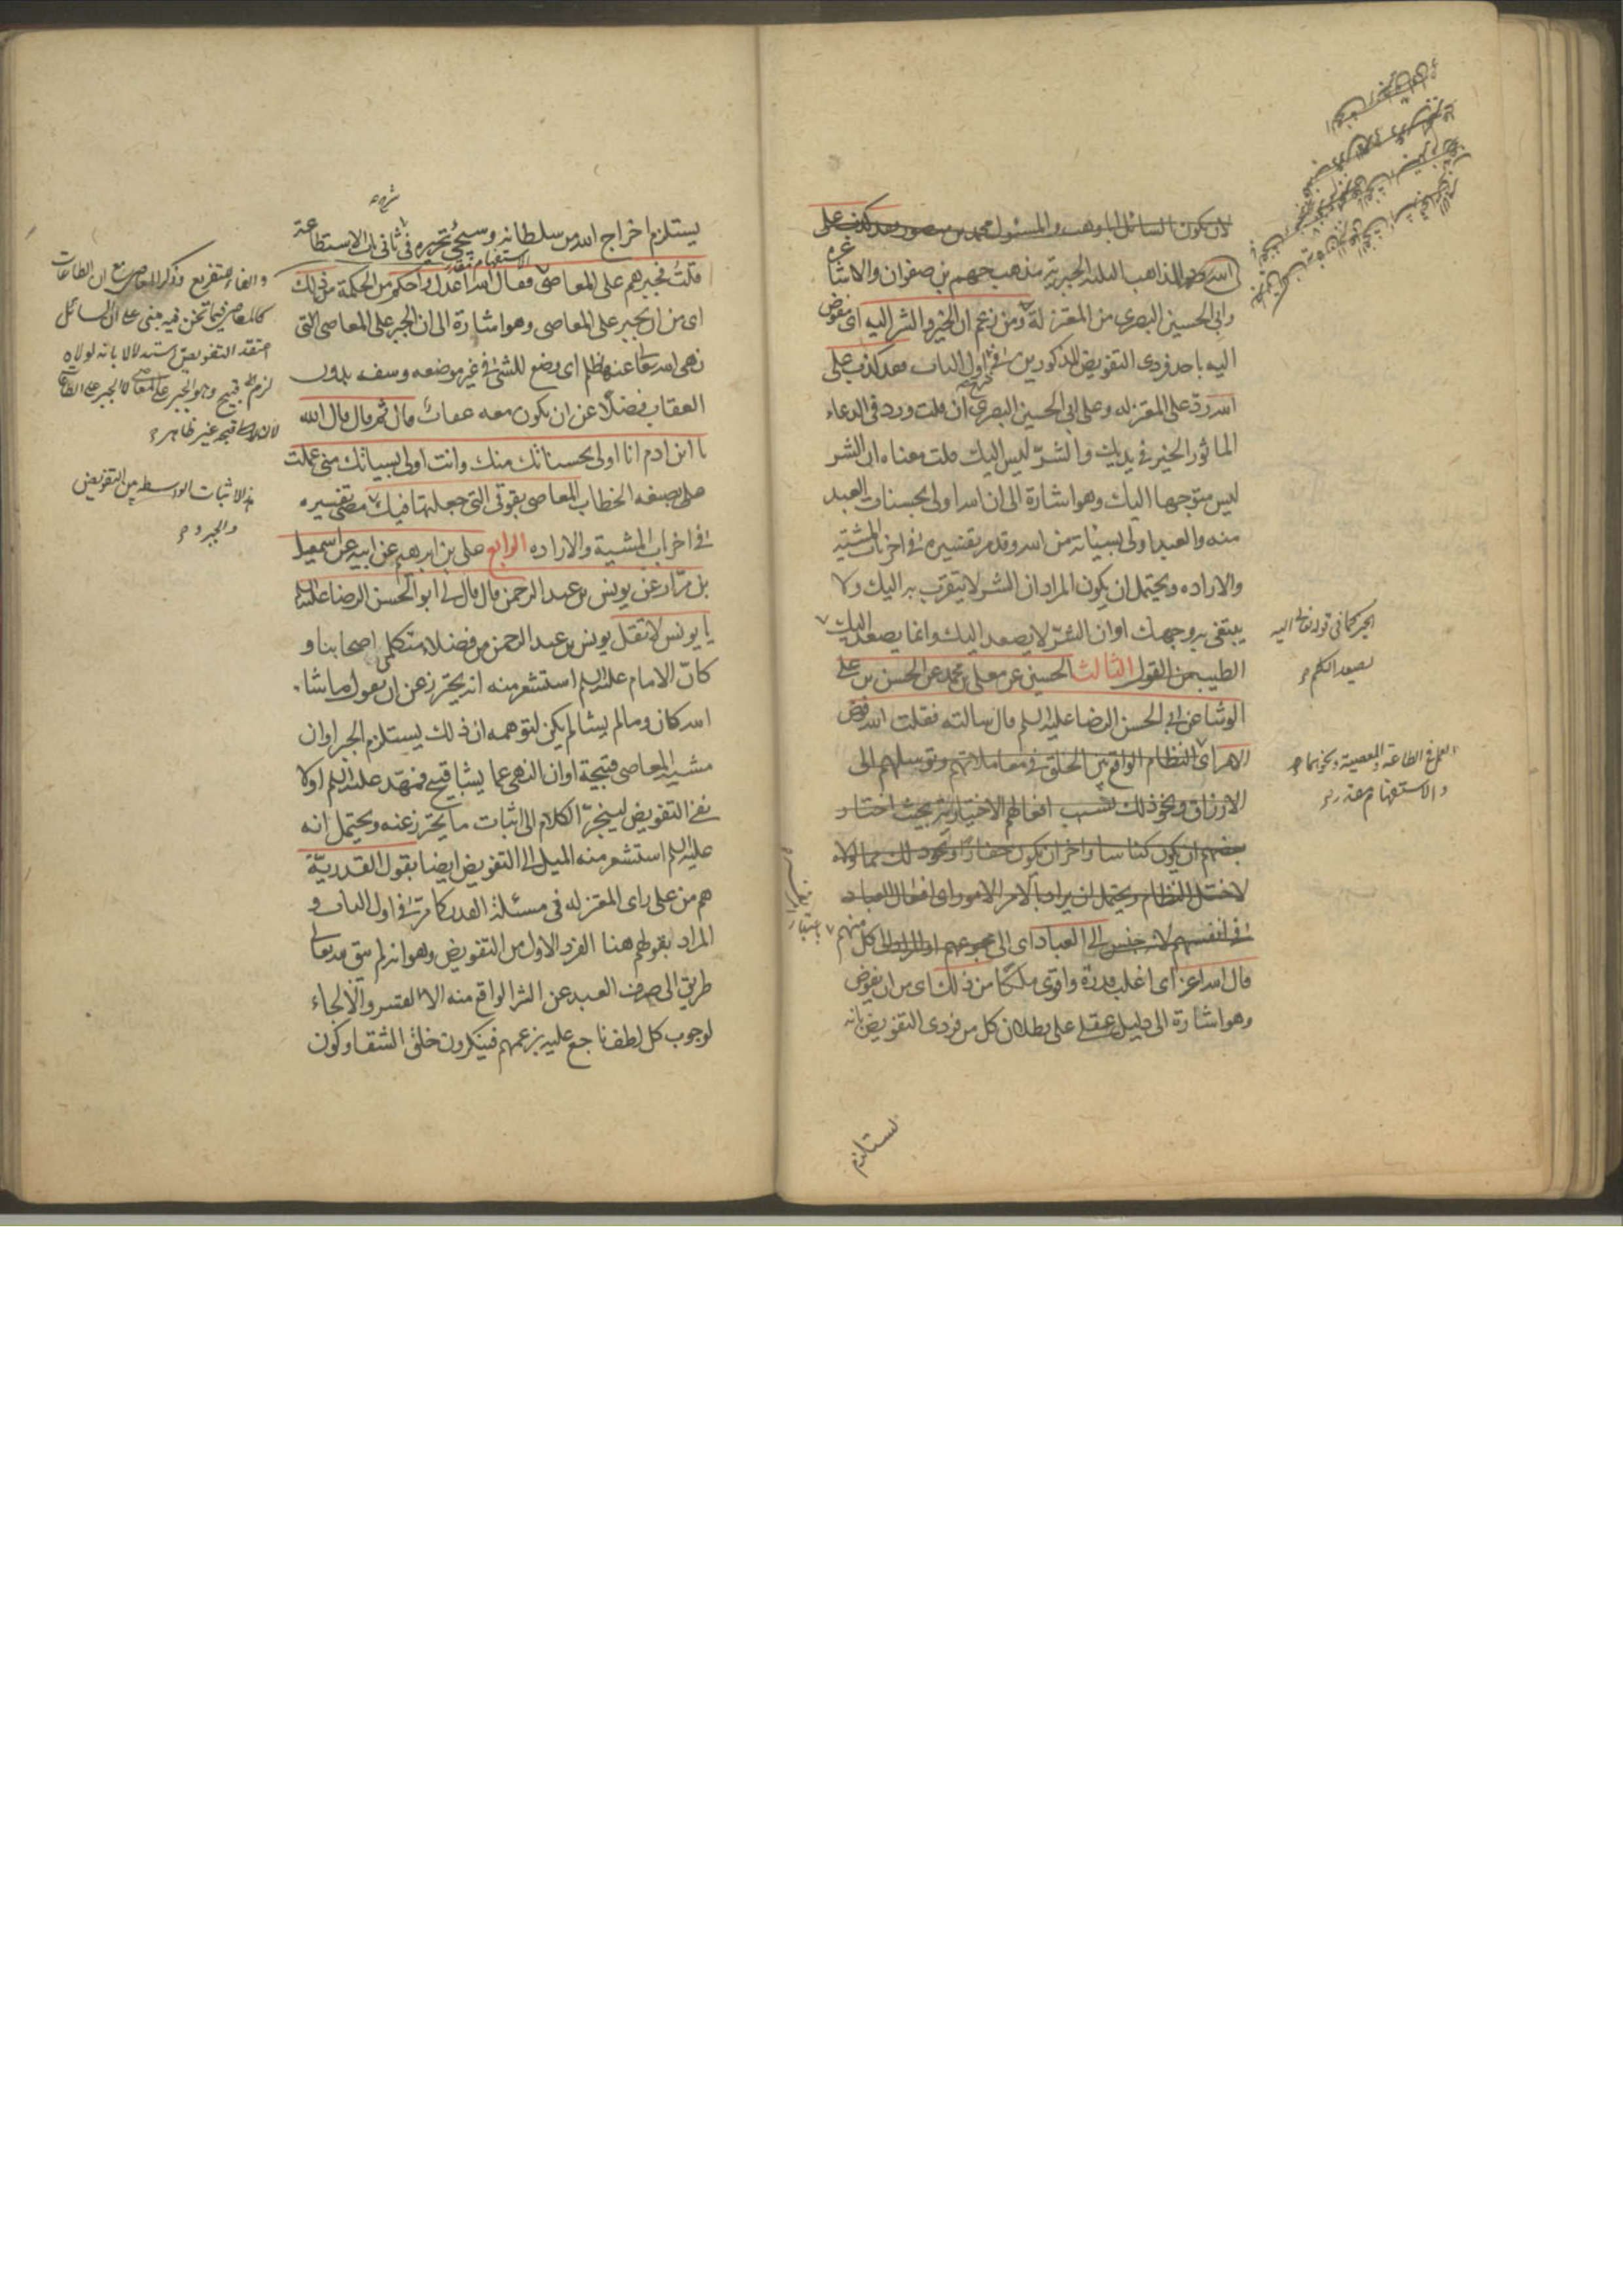 لان يكون السائل ابا وهب والمسئول محمد بن منصور فقد كذب على
الله وهم المذاهب الثلثة الجبرية مذهب جهم بن صفوان والاشاعرة
وابى الحسين البصرى من المعتزلة ومن زعم ان الخير والشر اليه اى مفوض
اليه باحد فردى التفويض المذكورين فى اول الباب فقد كذب على
الله رد على المعتزلة وعلى ابى الحسين البصرى ان قلت ورد فى الدعاء
الماثور الخير فى يديك والشر ليس اليك قلت معناه ان الشر
ليس متوجها اليك وهو اشارة الى ان الله اولى بحسنات العبد
منه والعبد اولى بسيئاته من الله وقد مر تفسيره فى اخر باب المشية
والارادة ويحتمل ان يكون المراد ان الشر لا يتقرب به اليك ولا
يبتغى به وجهك او ان الشر لا يصعد اليك وانما يصعد اليك
الطيب من القول الثالث الحسين عن معلى بن محمد عن الحسن بن على
الوشا عن ابى الحسن الرضا عليه السلم قال سالته فقلت الله فوض
الامر اى النظام الواقع بين الخلق فى معاملاتهم وتوسلهم الى
الارزاق ونحو ذلك بسبب افعالهم الاختيارية بحيث اختار
بعضهم ان يكون كناسا واخر ان يكون حفارا ونحو ذلك مما لولاه
لاختل النظام ويحتمل ان يراد بالامر الامور اى افعال العباد
فى انفسهم لانه جنس الى العباد اى الى مجموعهم او المراد الى كل منهم
قال الله اعز اى اغلب قدرة واقوى ملكا من ذلك اى من ان يفوض
وهو اشارة الى دليل عقلى على بطلان كل من فردى التفويض بانه
يستلزم
الخير كما فى قوله تعالى اليه
يصعد الكلم
العمل فى الطاعة والمعصية ونحوهما
والاستفهام مقدر
يستلزم اخراج الله من سلطانه وسيجئ تحريره فى ثانى باب الاستطاعة
الاستفهام مقدر
قلت فجبرهم على المعاصى فقال الله اعدل واحكم من الحكمة من ذلك
اى من ان يجبر على المعاصى وهو اشارة الى ان الجبر على المعاصى التى
نهى الله تعالى عنها ظلم اى وضع للشئ فى غير موضعه وسفه بدون
العقاب فضلا عن ان يكون معه عقاب قال ثم قال قال الله
يا ابن ادم انا اولى بحسناتك منك وانت اولى بسيئاتك منى عملت
على صيغة الخطاب المعاصى بقوتى التى جعلتها فيك مضى تفسيره
فى اخر باب المشية والارادة الرابع على بن ابرهيم عن ابيه عن اسمعيل
بن مرار عن يونس بن عبد الرحمن قال قال لى ابو الحسن الرضا عليه السلم
يا يونس لا تقل يونس بن عبد الرحمن من فضلاء متكلمى اصحابنا و
كان الامام عليه السلم استشعر منه انه يحترز عن ان يقول ما شاء
الله كان وما لم يشا لم يكن لتوهمه ان ذلك يستلزم الجبر او ان
مشية المعاصى قبيحة او ان النهى عما يشا قبيح فمهد عليه السلم اولا
نفى التفويض لينجر الكلام الى اثبات ما يحترز عنه ويحتمل انه
عليه السلم استشعر منه الميل الى التفويض ايضا بقول القدرية
هم من على راى المعتزلة فى مسئلة القدر كما مر فى اول الباب و
المراد بقولهم هنا الفرد الاول من التفويض وهو انه لم يبق لله تعالى
طريق الى صرف العبد عن الشر الواقع منه الا القسر والالجاء
لوجوب كل لطف ناجع عليه بزعمهم فينكرون خلق الشقاء وكون
والفاء للتفريع وذكر المعاصى مع ان الطاعات
كالمعاصى فيما نحن فيه مبنى على ان السائل
اعتقد التفويض استدلالا بانه لولاه
لزم قبيح وهو الجبر على المعاصى لا الجبر على الطاعات
قبحه غير ظاهر
هذا لاثبات الواسطة بين التفويض
والجبر